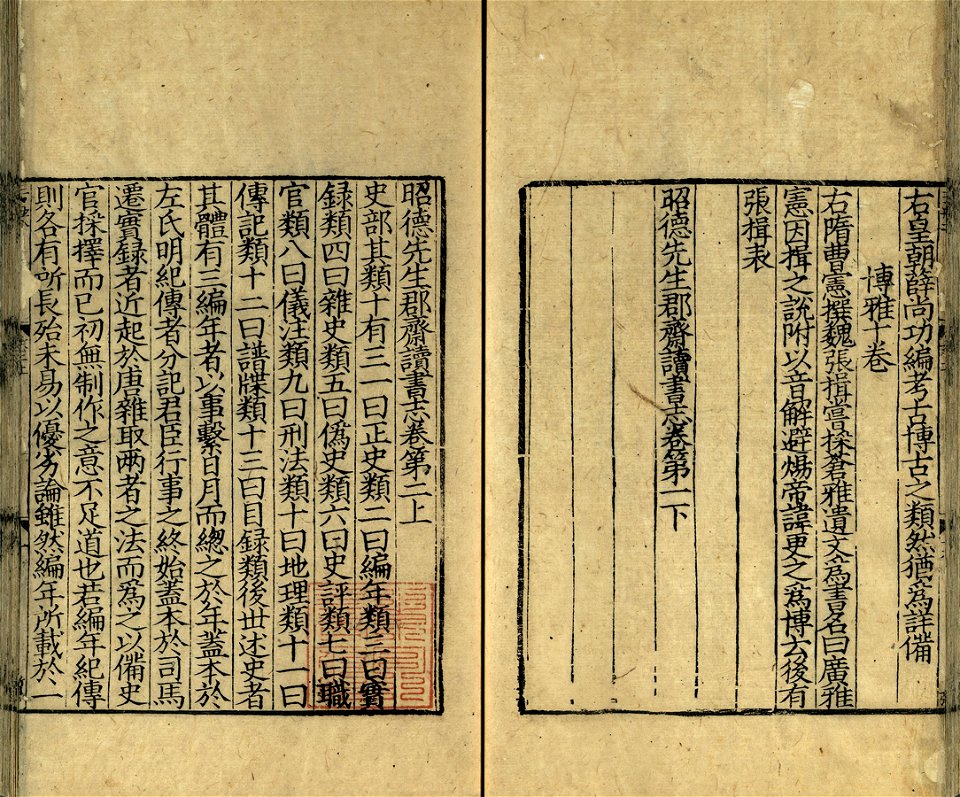 右皇朝薛尚功編考古博古之類然猶爲詳備
博雅十卷
右隋曹憲撰魏張揖嘗採蒼雅遺文爲書名曰廣雅
憲因揖之說附以音解避煬帝諱更之爲博云後有
張揖表
昭德先生郡齋讀書志卷第一下
昭德先生郡齋讀書志卷第二上
史部其類十有三一曰正史類二曰編年類三曰實
録類四曰雜史類五曰僞史類六曰史評類七曰職
官類八曰儀注類九曰刑法類十曰地理類十一曰
傳記類十二曰譜牒類十三曰目録類後世述史者
其體有三編年者以事繫日月而緫之於年蓋本於
左氏明紀傳者分記君臣行事之終始蓋本於司馬
遷實録者近起於唐雜取兩者之法而爲之以備史
官採擇而已初無制作之意不足道也若編年紀傳
則各有所長殆未易以優劣論雖然編年所載於一